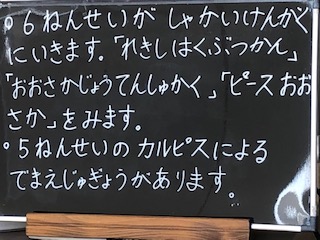 ○6ねんせいが しゃかいけんがく
にいきます。「れきしはくぶつかん」
「おおさかじょうてんしゅかく」「ピースおお
さか」をみます。
○5ねんせいの カルピスによる
でまえじゅぎょうがあります。